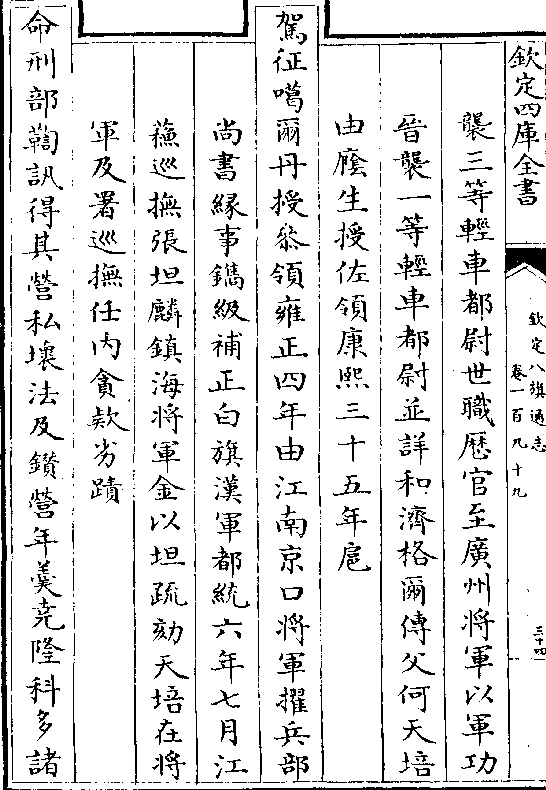 欽定四庫全書
欽定八旗通志
卷一百九十九
三十四
襲三等輕車都尉世職歴官至廣州將軍以軍功
晉襲一等輕車都尉並詳和濟格爾傳父何天培
由廕生授佐領康熙三十五年扈
駕征噶爾丹授叅領雍正四年由江南京口將軍擢兵部
尚書緣事鐫級補正白旗漢軍都統六年七月江
蘓巡撫張坦麟鎮海將軍金以坦疏劾天培在將
軍及署巡撫任内貪款劣蹟
命刑部鞫訊得其營私壊法及鑽營年羮尭隆科多諸